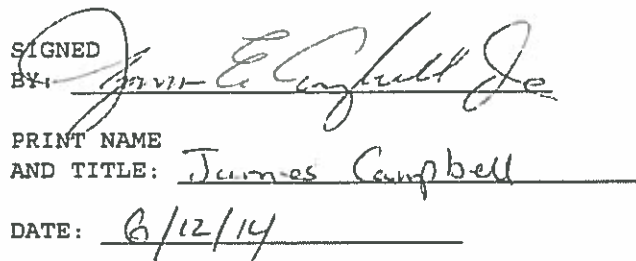 SIGNED
BY: James E Campbell Jr
PRINT NAME
AND TITLE: James Campbell
DATE: 6/12/14